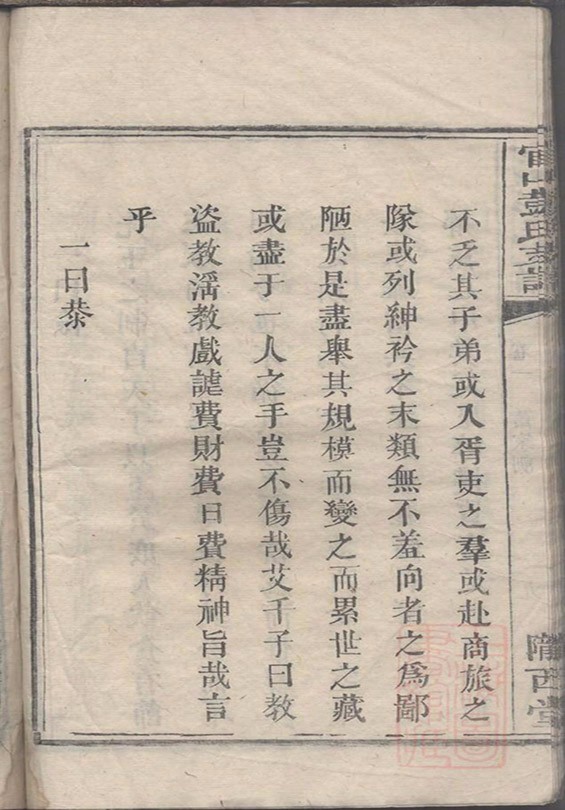 不乏其子弟或入胥吏之羣或赴商旅之
隊或列紳衿之末類無不羞向者之爲鄙
陋於是盡舉其規模而變之而累世之藏
或盡于一人之手豈不傷哉艾千子曰教
盜教淫教戲謔費財費日費精神旨哉言
乎
一曰恭
彭氏支譜
隴西堂